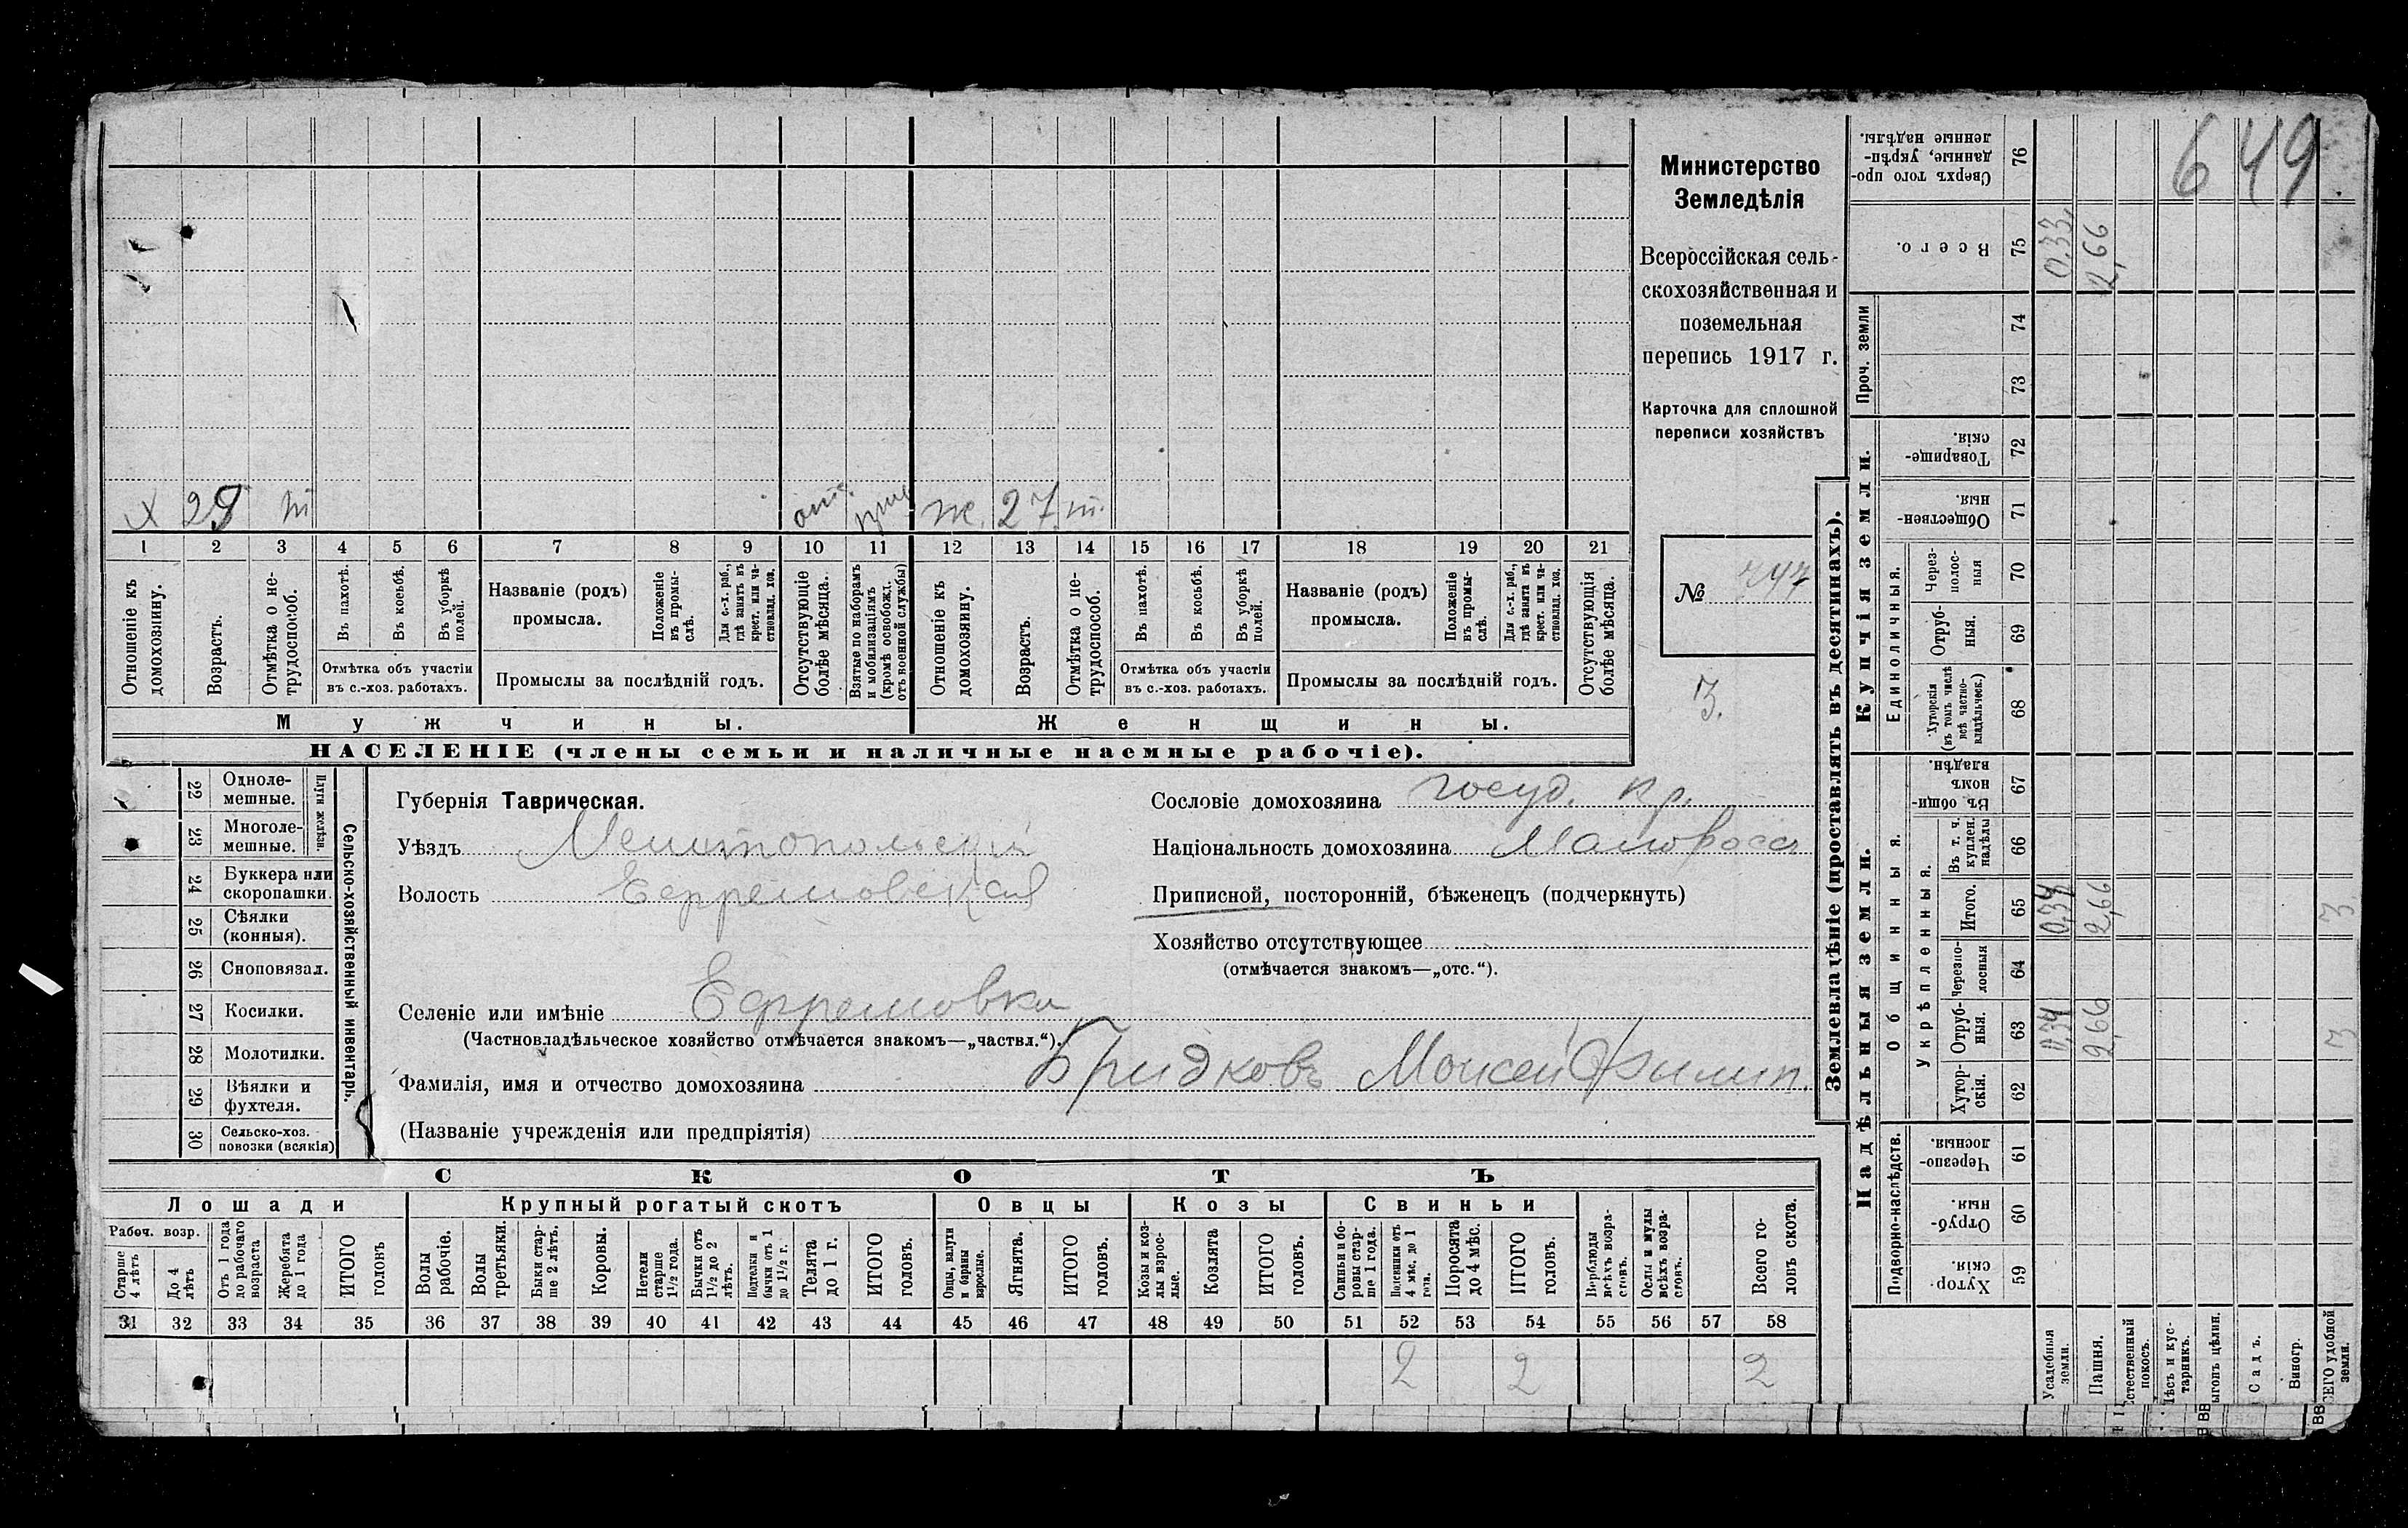 649
Министерство
Земледѣлія
Всероссійская сель-
скохозяйственная и
поземельная
перепись 1917 г.
Карточка для сплошной
переписи хозяйствъ
№ 747
3.
х 28 отс. ж. 27
1 2 3 4 5 6 7 8 9 10 11 12 13 14 15 16 17 18 19 20 21
Отношеніе къ домохозяину.
Возрастъ.
Отмѣтка о не-трудоспособ.
Въ пахотѣ.
Въ косьбѣ.
Въ уборкѣ полей.
Отмѣтка объ участіи
въ с.-хоз. работахъ.
Названіе (родъ)
промысла.
Положеніе въ промы-слѣ.
Для с.-х. раб., гдѣ занятъ въ крест. или ча-стновлад. хоз.
Промыслы за послѣдній годъ.
Отсутствующіе болѣе мѣсяца.
Взятые по наборамъ и мобилизаціямъ (кромѣ освобожд. отъ военной службы)
Отношеніе къ домохозяину.
Возрастъ.
Отмѣтка о не-трудоспособ.
Въ пахотѣ.
Въ косьбѣ.
Въ уборкѣ полей.
Отмѣтка объ участіи
въ с.-хоз. работахъ.
Названіе (родъ)
промысла.
Положеніе въ промы-слѣ.
Для с.-х. раб., гдѣ занята въ крест. или ча-стновлад. хоз.
Промыслы за послѣдній годъ.
Отсутствующія болѣе мѣсяца.
Мужчины.
Женщины.
НАСЕЛЕНІЕ (члены семьи и наличные наемные рабочіе).
Сельско-хозяйственный инвентарь.
Плуги желѣзн.
22 Одноле-мешные.
23 Многоле-мешные.
24 Буккера или скоропашки.
25 Сѣялки (конныя).
26 Сноповязал.
27 Косилки.
28 Молотилки.
29 Вѣялки и фухтеля.
30 Сельско-хоз. повозки (всякія)
Губернія Таврическая.
Уѣздъ Мелитопольскій
Волость Ефремовская
Селеніе или имѣніе Ефремовка
(Частновладѣльческое хозяйство отмѣчается знакомъ—„частвл.“).
Фамилія, имя и отчество домохозяина Бридковъ Моисей Филип.
(Названіе учрежденія или предпріятія)
Сословіе домохозяина госуд. кр.
Національность домохозяина Малоросс
Приписной, посторонній, бѣженецъ (подчеркнуть)
Хозяйство отсутствующее
(отмѣчается знакомъ—„отс.“).
СКОТЪ
Лошади
Крупный рогатый скотъ
Овцы
Козы
Свиньи
Рабоч. возр.
Старше 4 лѣтъ
До 4 лѣтъ
Отъ 1 года до рабочаго возраста
Жеребята до 1 года
ИТОГО головъ
Волы рабочіе.
Волы третьяки.
Быки стар-ше 2 лѣтъ.
Коровы.
Нетели старше 1½ года.
Бычки отъ 1½ до 2 лѣтъ.
Подтелки и бычки отъ 1 до 1½ г.
Телята до 1 г.
ИТОГО головъ.
Овцы, валухи и бараны взрослые.
Ягнята.
ИТОГО головъ.
Козы и коз-лы взрос-лые.
Козлята
ИТОГО головъ.
Свиньи и бо-ровы стар-ше 1 года.
Подсвинки отъ 4 мѣс. до 1 года.
Поросята до 4 мѣс.
ИТОГО головъ.
Верблюды всѣхъ возра-стовъ.
Ослы и мулы всѣхъ возра-стовъ.
Всего го-ловъ скота.
31 32 33 34 35 36 37 38 39 40 41 42 43 44 45 46 47 48 49 50 51 52 53 54 55 56 57 58
2 2 2
Землевладѣніе (проставлять въ десятинахъ).
Надѣльныя земли.
Купчія земли.
Проч. земли
Подворно-наслѣдств.
Общинныя.
Укрѣпленныя.
Единоличныя.
Хутор-скія. 59
Отруб-ныя. 60
Черезпо-лосныя. 61
Хутор-скія. 62
Отруб-ныя. 63 0,34 2,66 3
Черезпо-лосныя 64
Итого. 65 0,34 2,66 3
Въ т. ч. куплен. надѣлы 66
Въ общи-номъ владѣн. 67
Хуторскія (въ томъ числѣ всѣ частно-владѣльческ.) 68
Отруб-ныя. 69
Через-полос-ныя 70
Обществен-ныя. 71
Товарище-скія. 72
73
74
Всего. 75 0,33 2,66
Сверхъ того про-данные, укрѣп-ленные надѣлы. 76
Усадебныя земли.
Пашня.
стественный покосъ.
Лѣсъ и кус-тарникъ.
ыгонъ цѣлин.
Садъ.
Виногр.
СЕГО удобной земли.